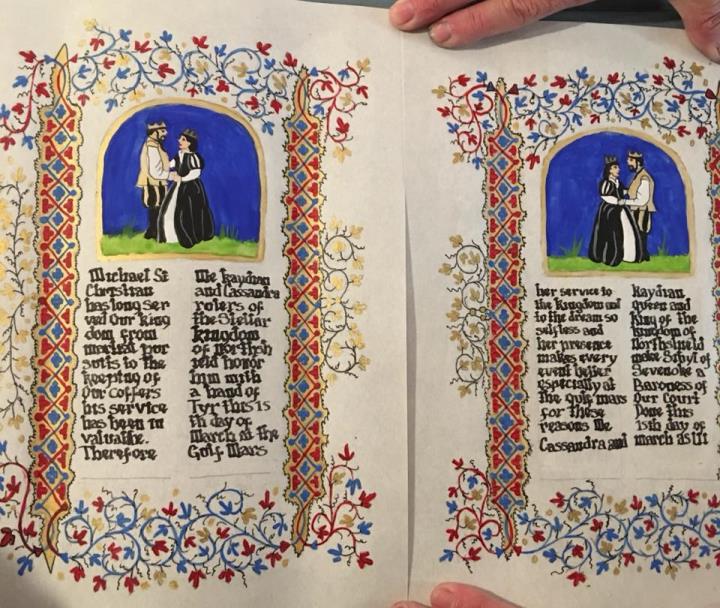 Michael St
Christian
has long ser
ved Our King
dom from
martial pur
suits to the
keeping of
Our coffers
his service
has been in
valuable.
Therefore
We Kaydian
and Cassandra
rulers of
the Stellar
Kingdom
of Northsh
ield honor
him with
a hand of
Tyr this 15
th day of
March at the
Gulf Wars
her service to
the kingdom and
to the dream so
selfless and
her presence
makes every
event better
especially at
the gulf wars
for these
reasons We
Cassandra and
Kaydian
Queen and
King of the
kingdom of
Northshield
make Sibyl of
Sevenoke a
Baroness of
Our Court
Done this
15th day of
march as lii